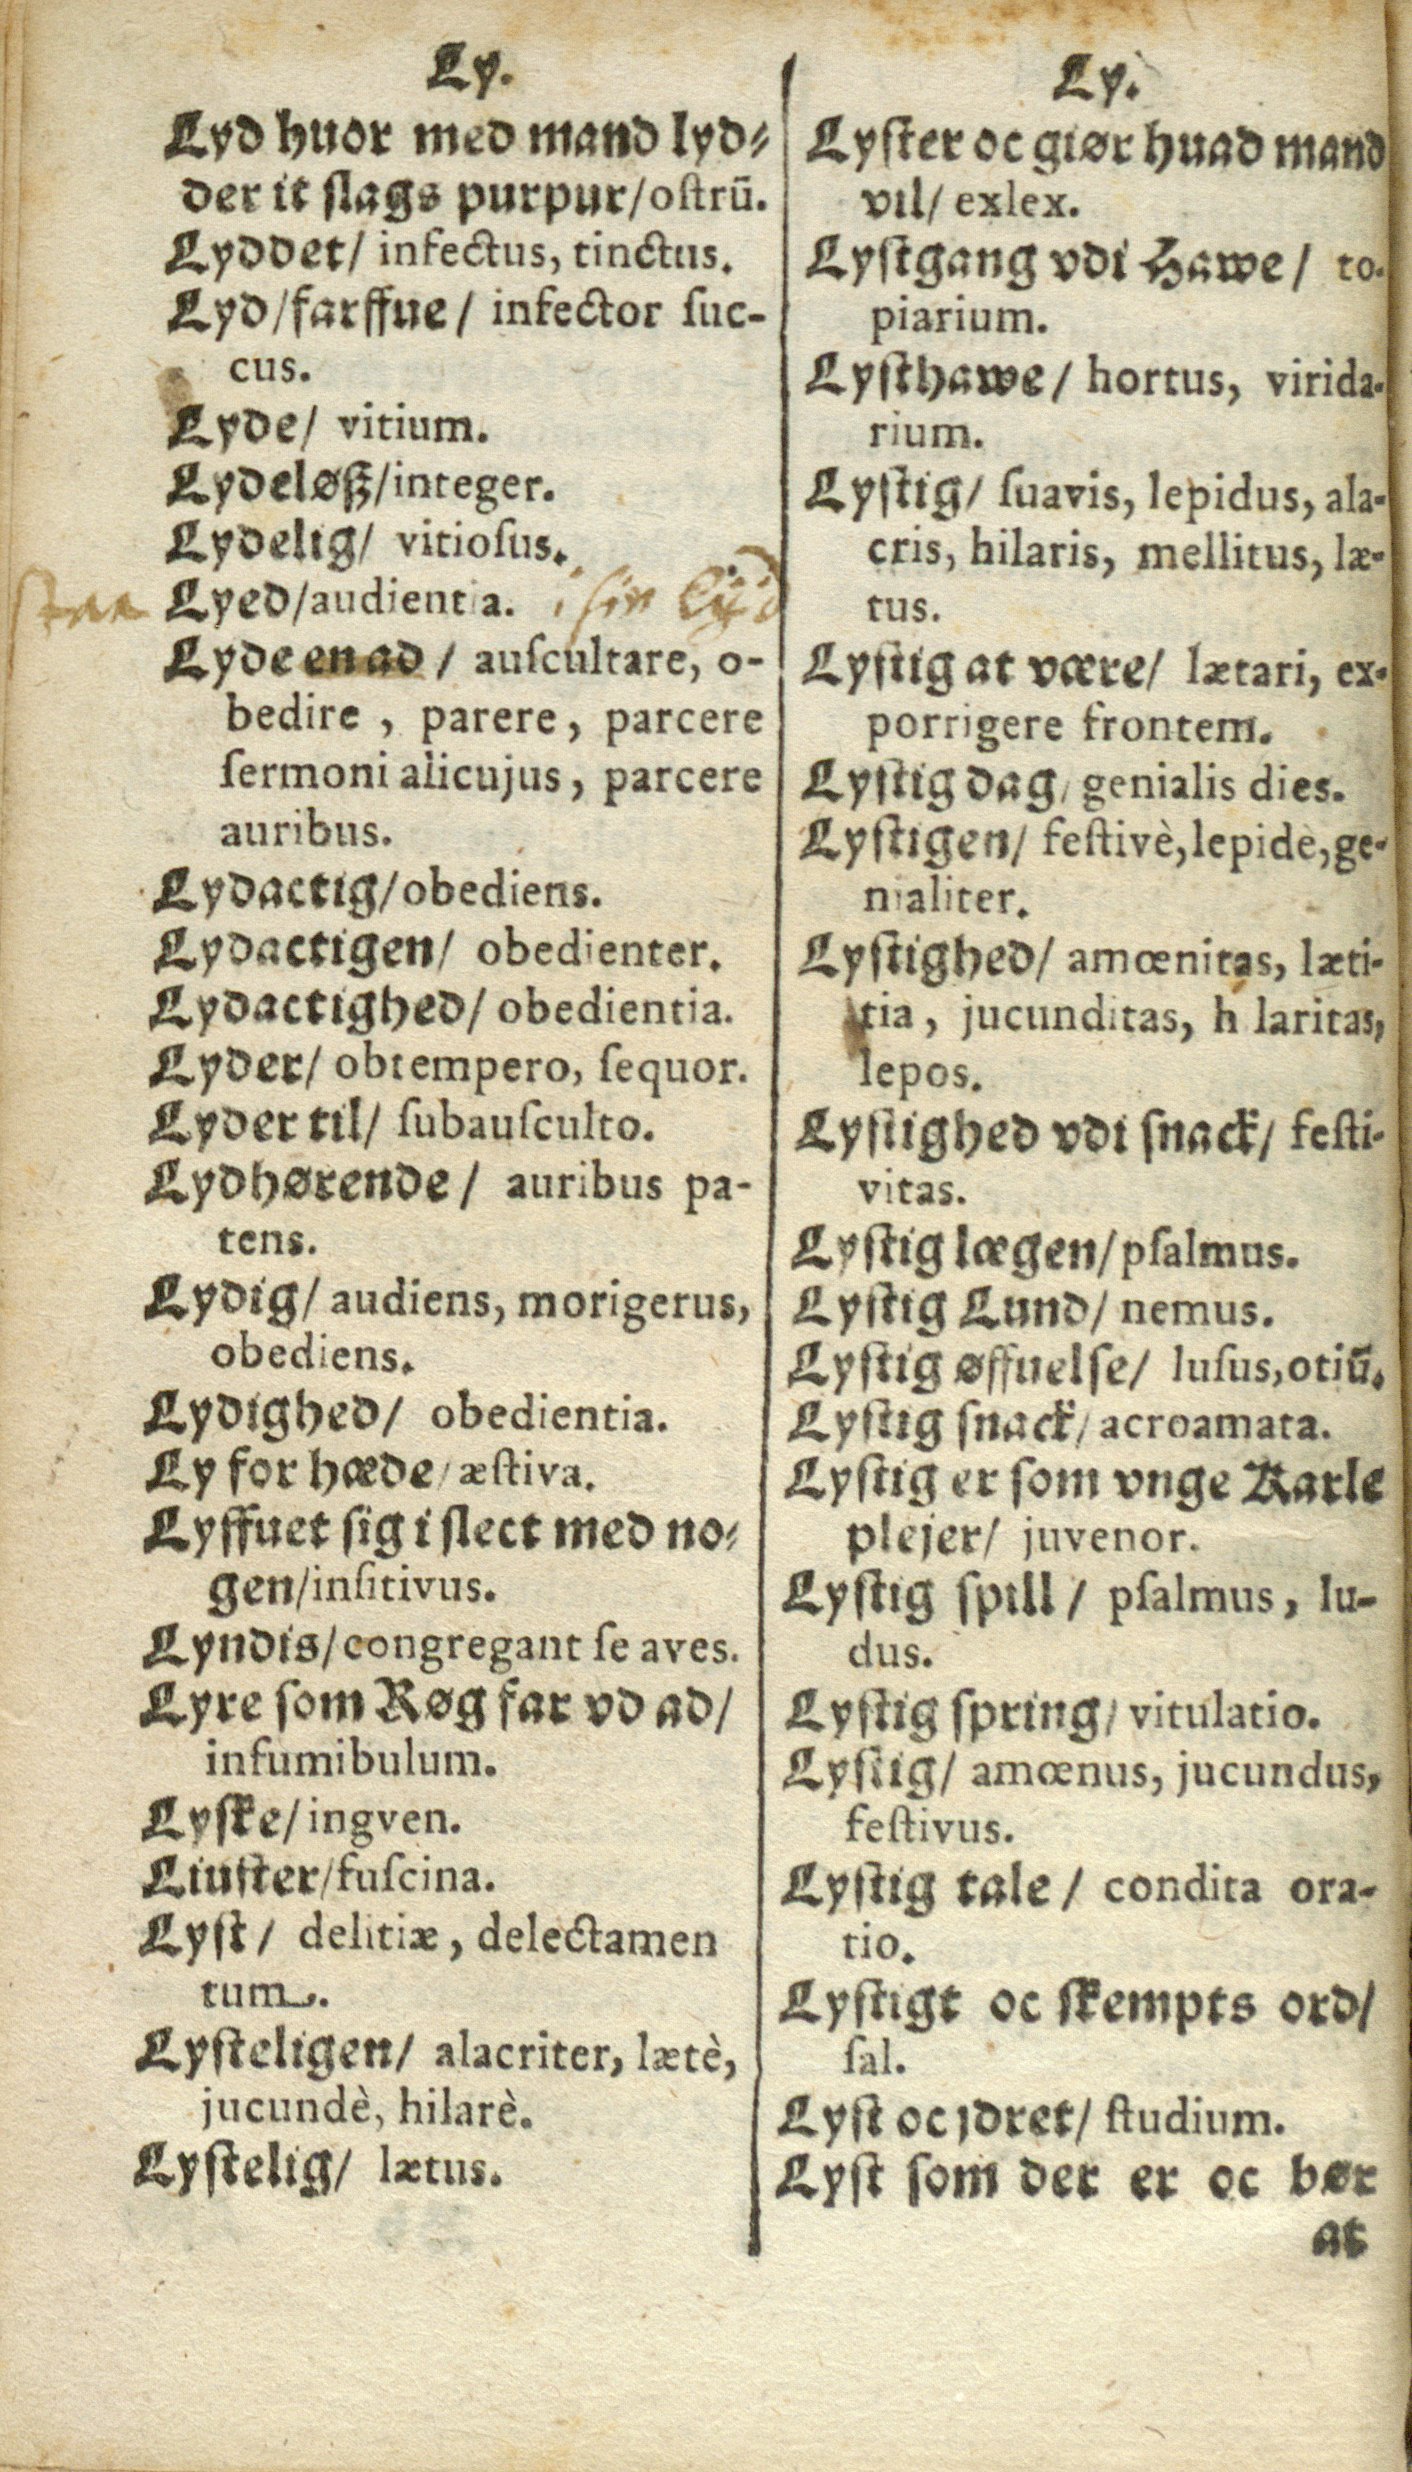 Ly.
Lyd huor med mand lyd⸗
der it slags purpur/ oſtrū.
Lyddet/ infectus, tinctus.
Lyd/farffue/ infector ſuc-
cus.
Lyde/ vitium.
Lydeløß/integer.
Lydelig/ vitioſus.
Lyed/audientia.
Lyde en ad / auſcultare, o-
bedire , parere, parcere
ſermoni alicujus, parcere
auribus.
Lydactig/obediens.
Lydactigen/ obedienter.
Lydactighed/ obedientia.
Lyder/ obtempero, ſequor.
Lyder til/ ſubauſculto.
Lydhørende/ auribus pa-
tens.
Lydig/ audiens, morigerus,
obediens.
Lydighed/ obedientia.
Ly for hæde/ æſtiva.
Lyffuet ſig i ſlect med no⸗
gen/inſitivus.
Lyndis/congregant ſe aves.
Lyre ſom Røg far vd ad/
infumibulum.
Lyſke/ingven.
Liuſter/fuſcina.
Lyſt/ delitiæ, delectamen
tum.
Lyſteligen/ alacriter, lætè,
jucundè, hilarè.
Lyſtelig/ lætus.
Ly.
Lyſter oc giør huad mand
vil/ exlex.
Lyſtgang vdi Hawe/ to-
piarium.
Lyſthawe/ hortus, virida-
rium.
Lyſtig/ ſuavis, lepidus, ala-
cris, hilaris, mellitus, læ-
tus.
Lyſtig at være/ lætari, ex-
porrigere frontem.
Lyſtig dag/ genialis dies.
Lyſtigen/ feſtivè, lepidè, ge-
nialiter.
Lyſtighed/ amœnitas, læti-
tia, jucunditas, h laritas,
lepos.
Lyſtighed vdi ſnack/ feſti-
vitas.
Lyſtig lægen/pſalmus.
Lyſtig Lund/ nemus.
Lyſtig øffuelſe/ luſus, otiū.
Lyſtig ſnack/ acroamata.
Lyſtig er ſom vnge Karle
plejer/ juvenor.
Lyſtig ſpill/ pſalmus, lu-
dus.
Lyſtig ſpring/ vitulatio.
Lyſtig/ amœnus, jucundus,
feſtivus.
Lyſtig tale/ condita ora-
tio.
Lyſtigt oc ſkempts ord/
ſal.
Lyſt oc jdret/ ſtudium.
Lyſt ſom der er oc bør
at